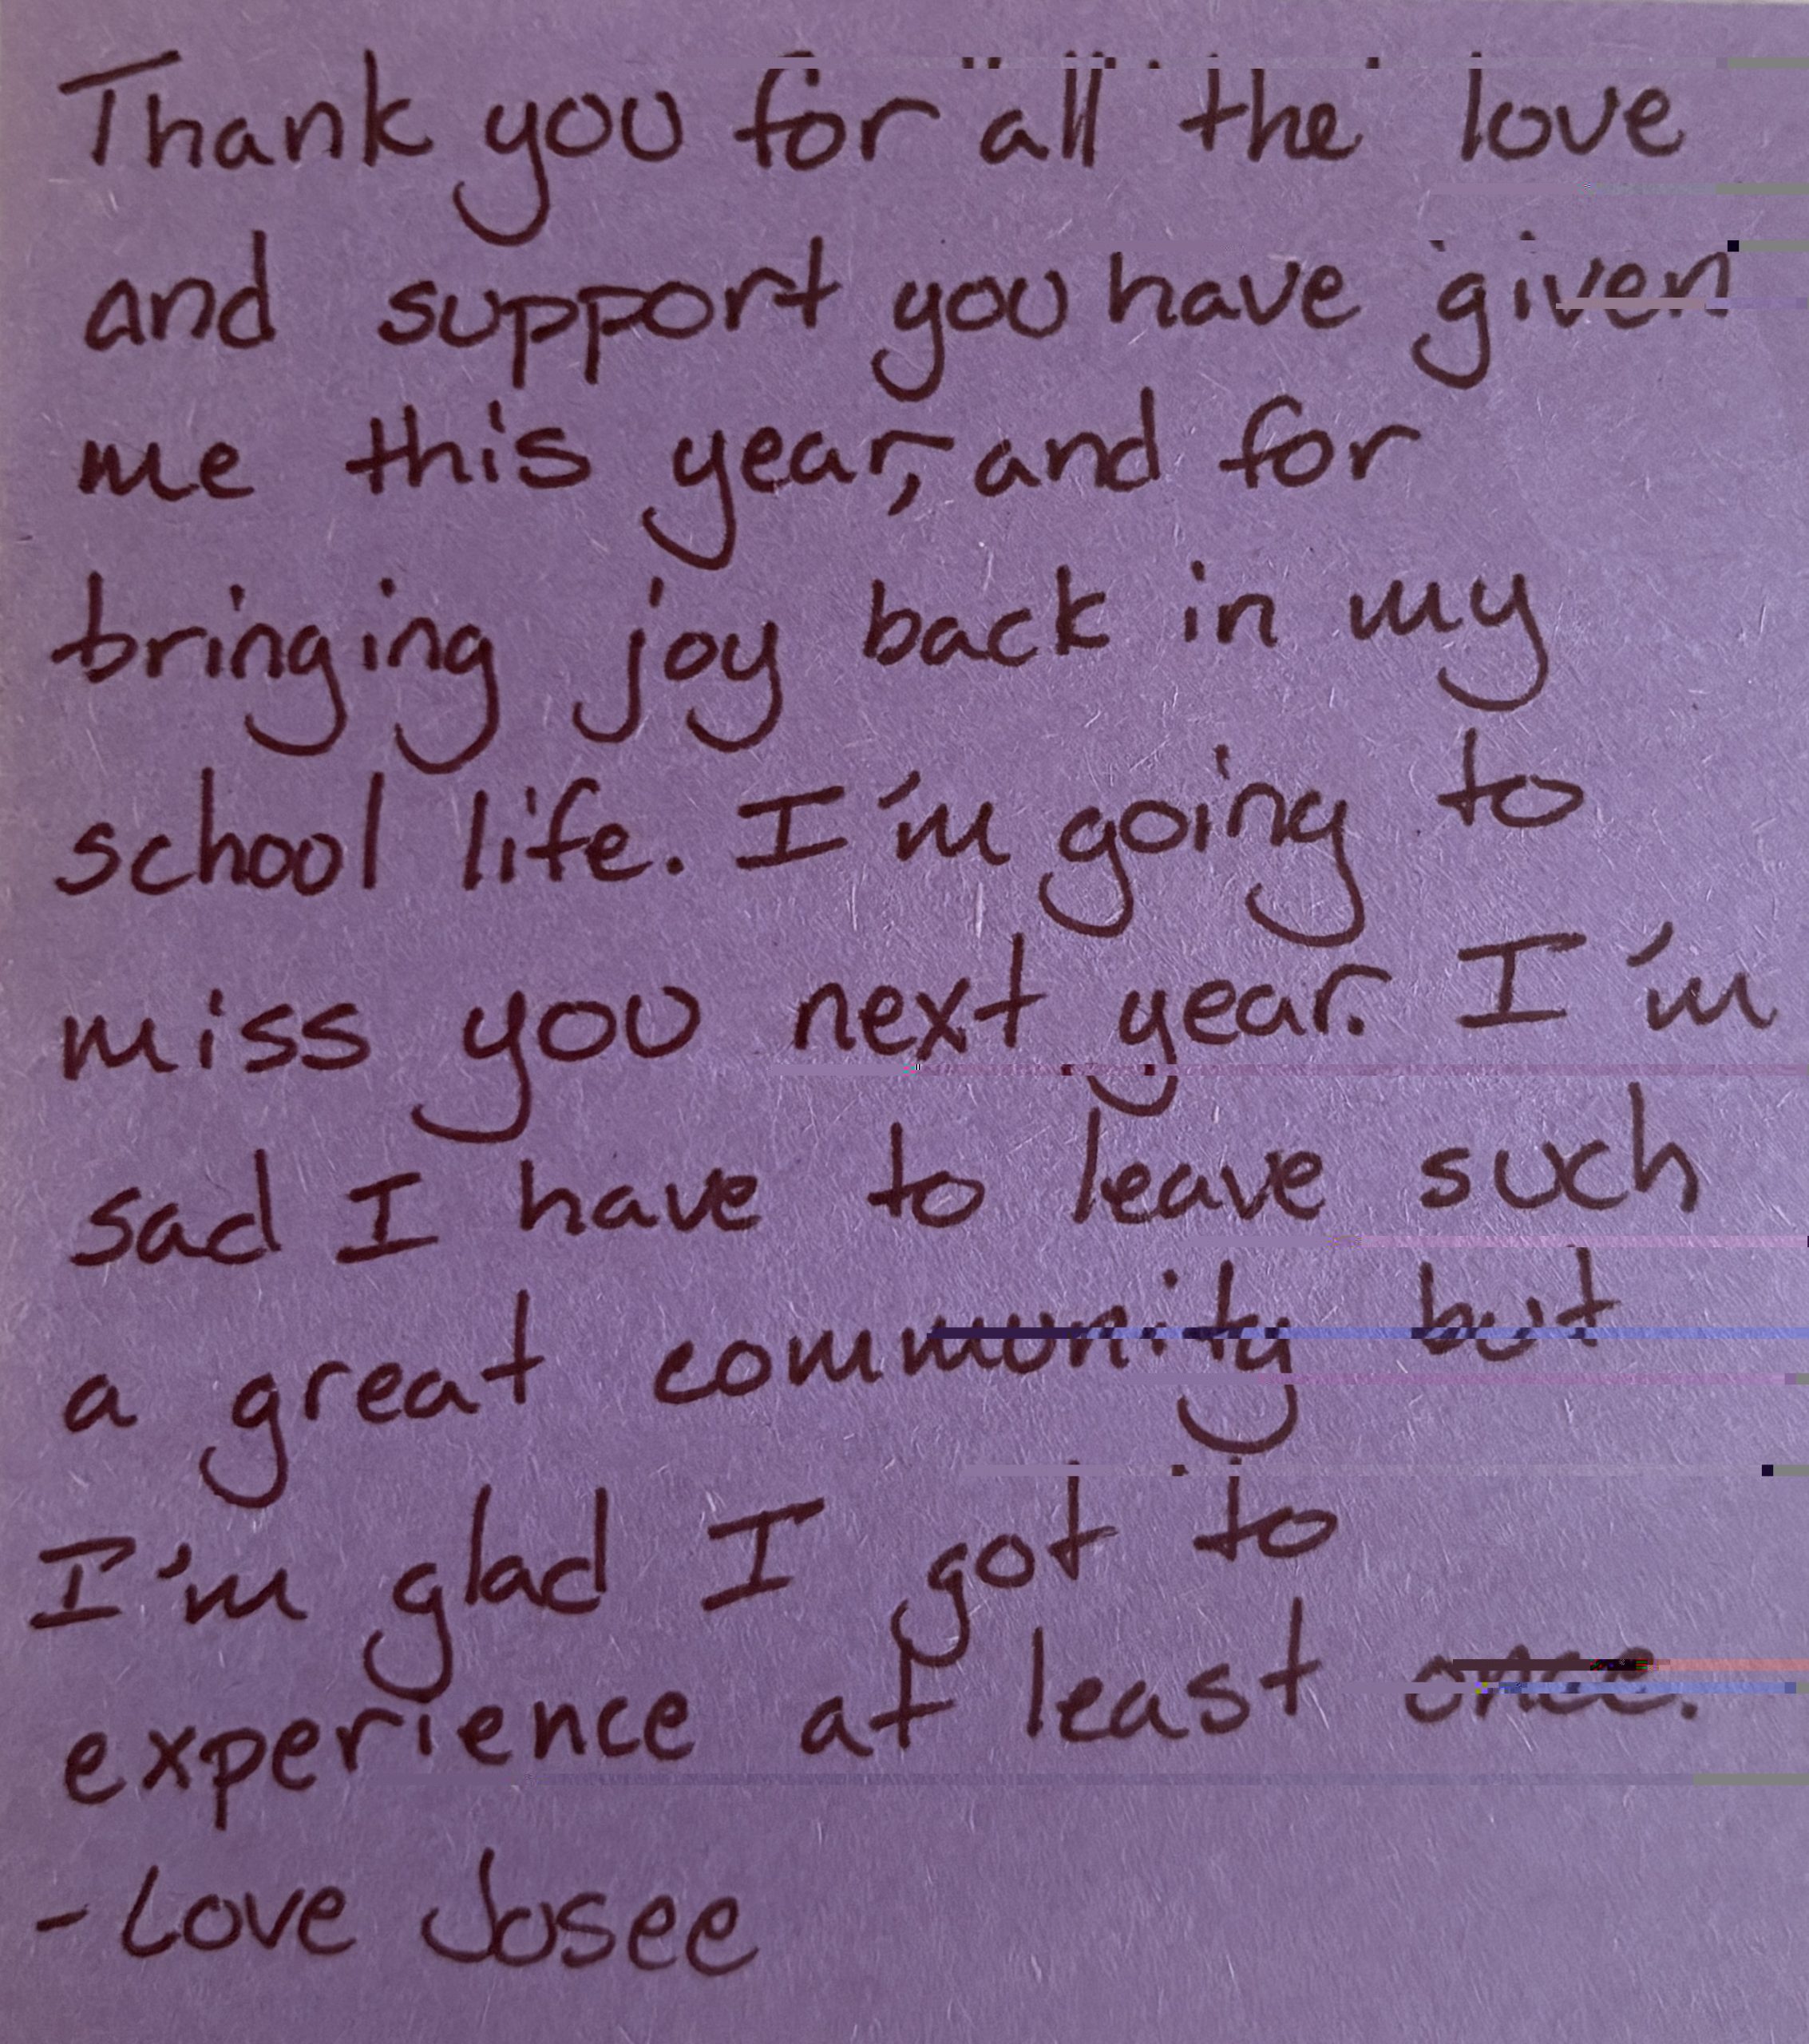 Thank you for all the love
and support you have given
me this year, and for
bringing joy back in my
school life. I'm going to
miss you next year. I'm
sad I have to leave such
a great community but
I'm glad I got to
experience at least once.
- Love Josee